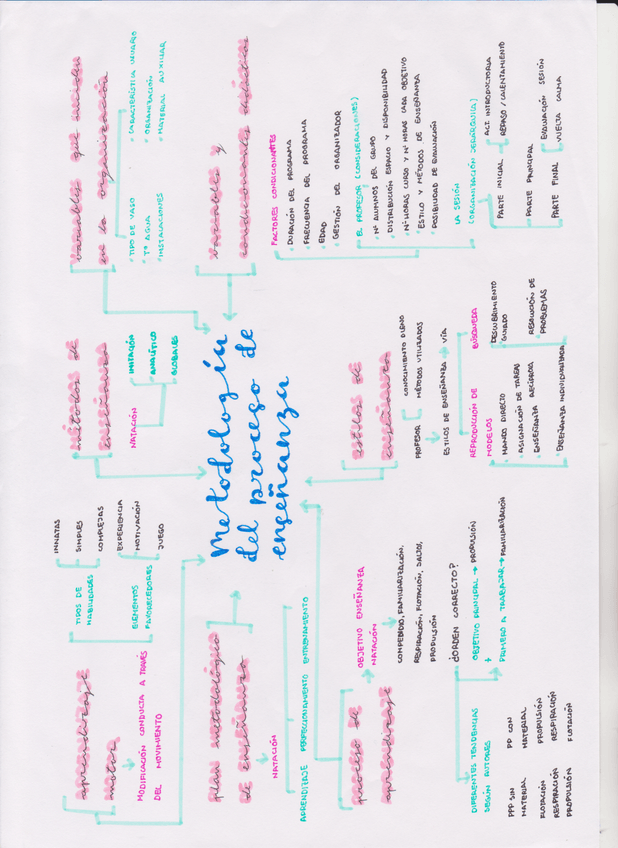 aprendizaje
motor
MODIFICACIÓN CONDUCTA A TRAVÉS
DEL MOVIMIENTO
TIPOS DE
HABILIDADES
INNATAS
SIMPLES
COMPLEJAS
ELEMENTOS
FAVORECEDORES
EXPERIENCIA
MOTIVACIÓN
JUEGO
métodos de
enseñanza
NATACIÓN
IMITACIÓN
ANALÍTICO
GLOBALES
variables que inciden
en la organización
TIPO DE VASO
Tª AGUA
INSTALACIONES
CARACTERÍSTICA USUARIO
ORGANIZACIÓN
MATERIAL AUXILIAR
plan metodológico
de enseñanza
NATACIÓN
APRENDIZAJE PERFECCIONAMIENTO ENTRENAMIENTO
Metodología
del proceso de
enseñanza
variables y
condicionales didácticos
FACTORES CONDICIONANTES
DURACIÓN DEL PROGRAMA
FRECUENCIA DEL PROGRAMA
EDAD
GESTIÓN DEL ORGANIZADOR
EL PROFESOR (CONSIDERACIONES)
Nº ALUMNOS DEL GRUPO
DISTRIBUCIÓN ESPACIO Y DISPONIBILIDAD
Nº HORAS CURSO Y Nº HORAS CADA OBJETIVO
ESTILO Y MÉTODOS DE ENSEÑANZA
POSIBILIDAD DE EVALUACIÓN
LA SESIÓN
(ORGANIZACIÓN JERÁRQUICA)
PARTE INICIAL
ACT. INTRODUCTORIA
REPASO/CALENTAMIENTO
PARTE PRINCIPAL
PARTE FINAL
EVALUACIÓN SESIÓN
VUELTA CALMA
proceso de
aprendizaje
OBJETIVO ENSEÑANZA
NATACIÓN
COMPENDIO, FAMILIARIZACIÓN,
RESPIRACIÓN, FLOTACIÓN, SALTOS,
PROPULSIÓN
¿ORDEN CORRECTO?
DIFERENTES TENDENCIAS
SEGÚN AUTORES
OBJETIVO PRINCIPAL → PROPULSIÓN
+
PRIMERO A TRABAJAR → FAMILIARIZACIÓN
PPP SIN
MATERIAL
FLOTACIÓN
RESPIRACIÓN
PROPULSIÓN
PP CON
MATERIAL
PROPULSIÓN
RESPIRACIÓN
FLOTACIÓN
estilos de
enseñanza
PROFESOR
CONOCIMIENTO PLENO
MÉTODOS UTILIZADOS
ESTILOS DE ENSEÑANZA → VÍA
REPRODUCCIÓN DE
MODELOS
MANDO DIRECTO
ASIGNACIÓN DE TAREAS
ENSEÑANZA RECÍPROCA
ENSEÑANZA INDIVIDUALIZADA
BÚSQUEDA
DESCUBRIMIENTO
GUIADO
RESOLUCIÓN DE
PROBLEMAS